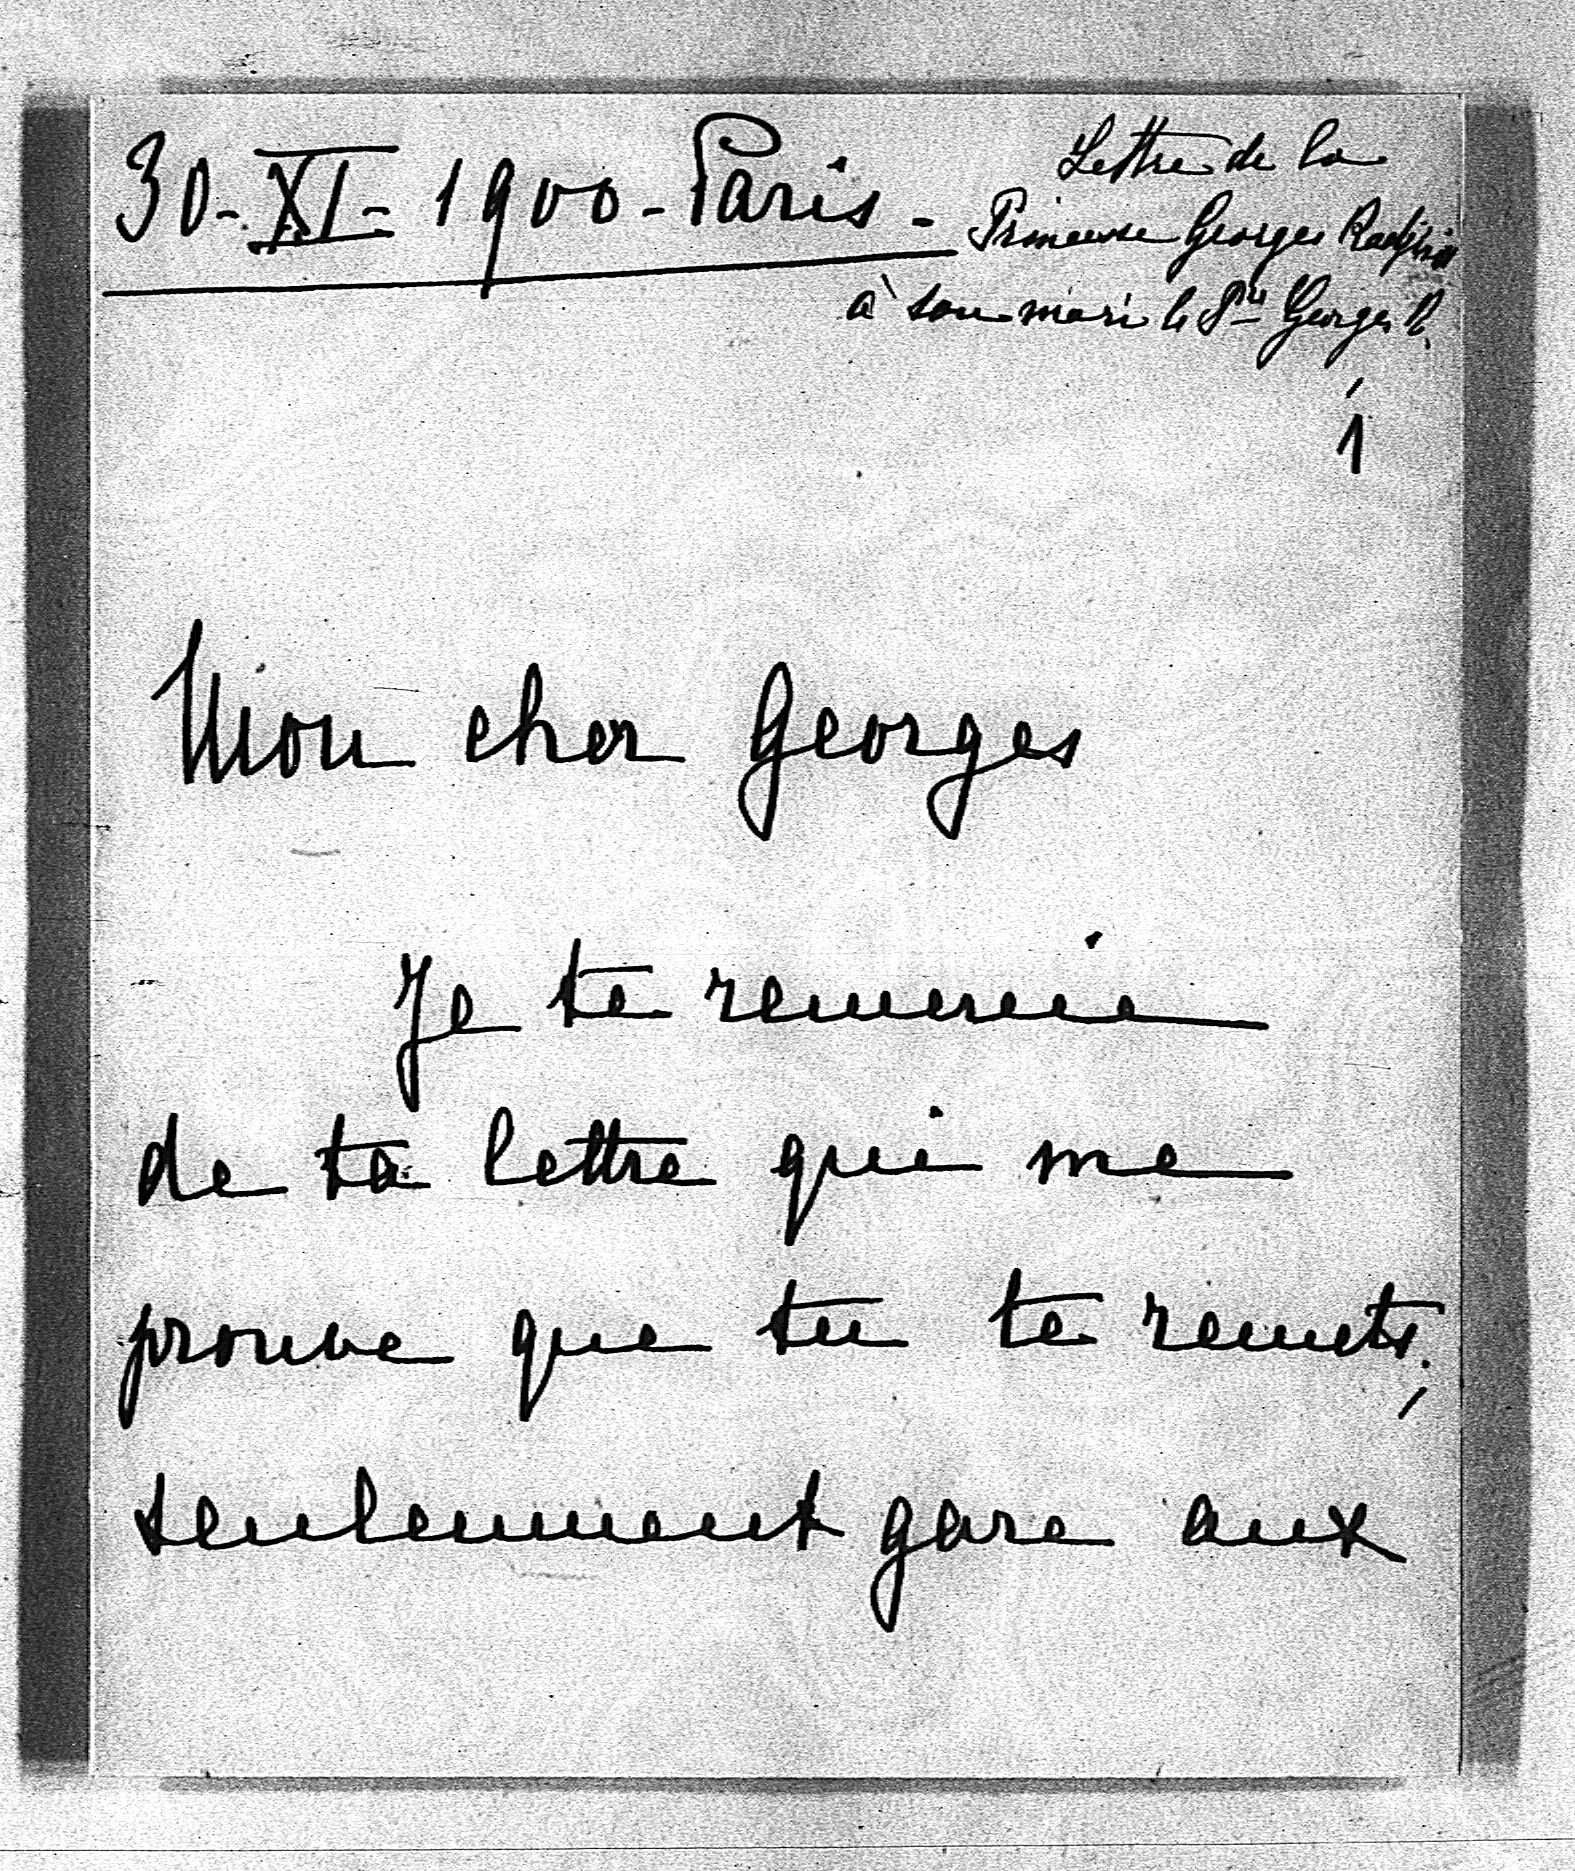 30-XI-1900-Paris-
Lettre de la
Princesse Georges Radziwill
à son mari le Pce Georges R.
1
Mon cher Georges
Je te remercie
de ta lettre qui me
prouve que tu te remets;
seulement gare aux